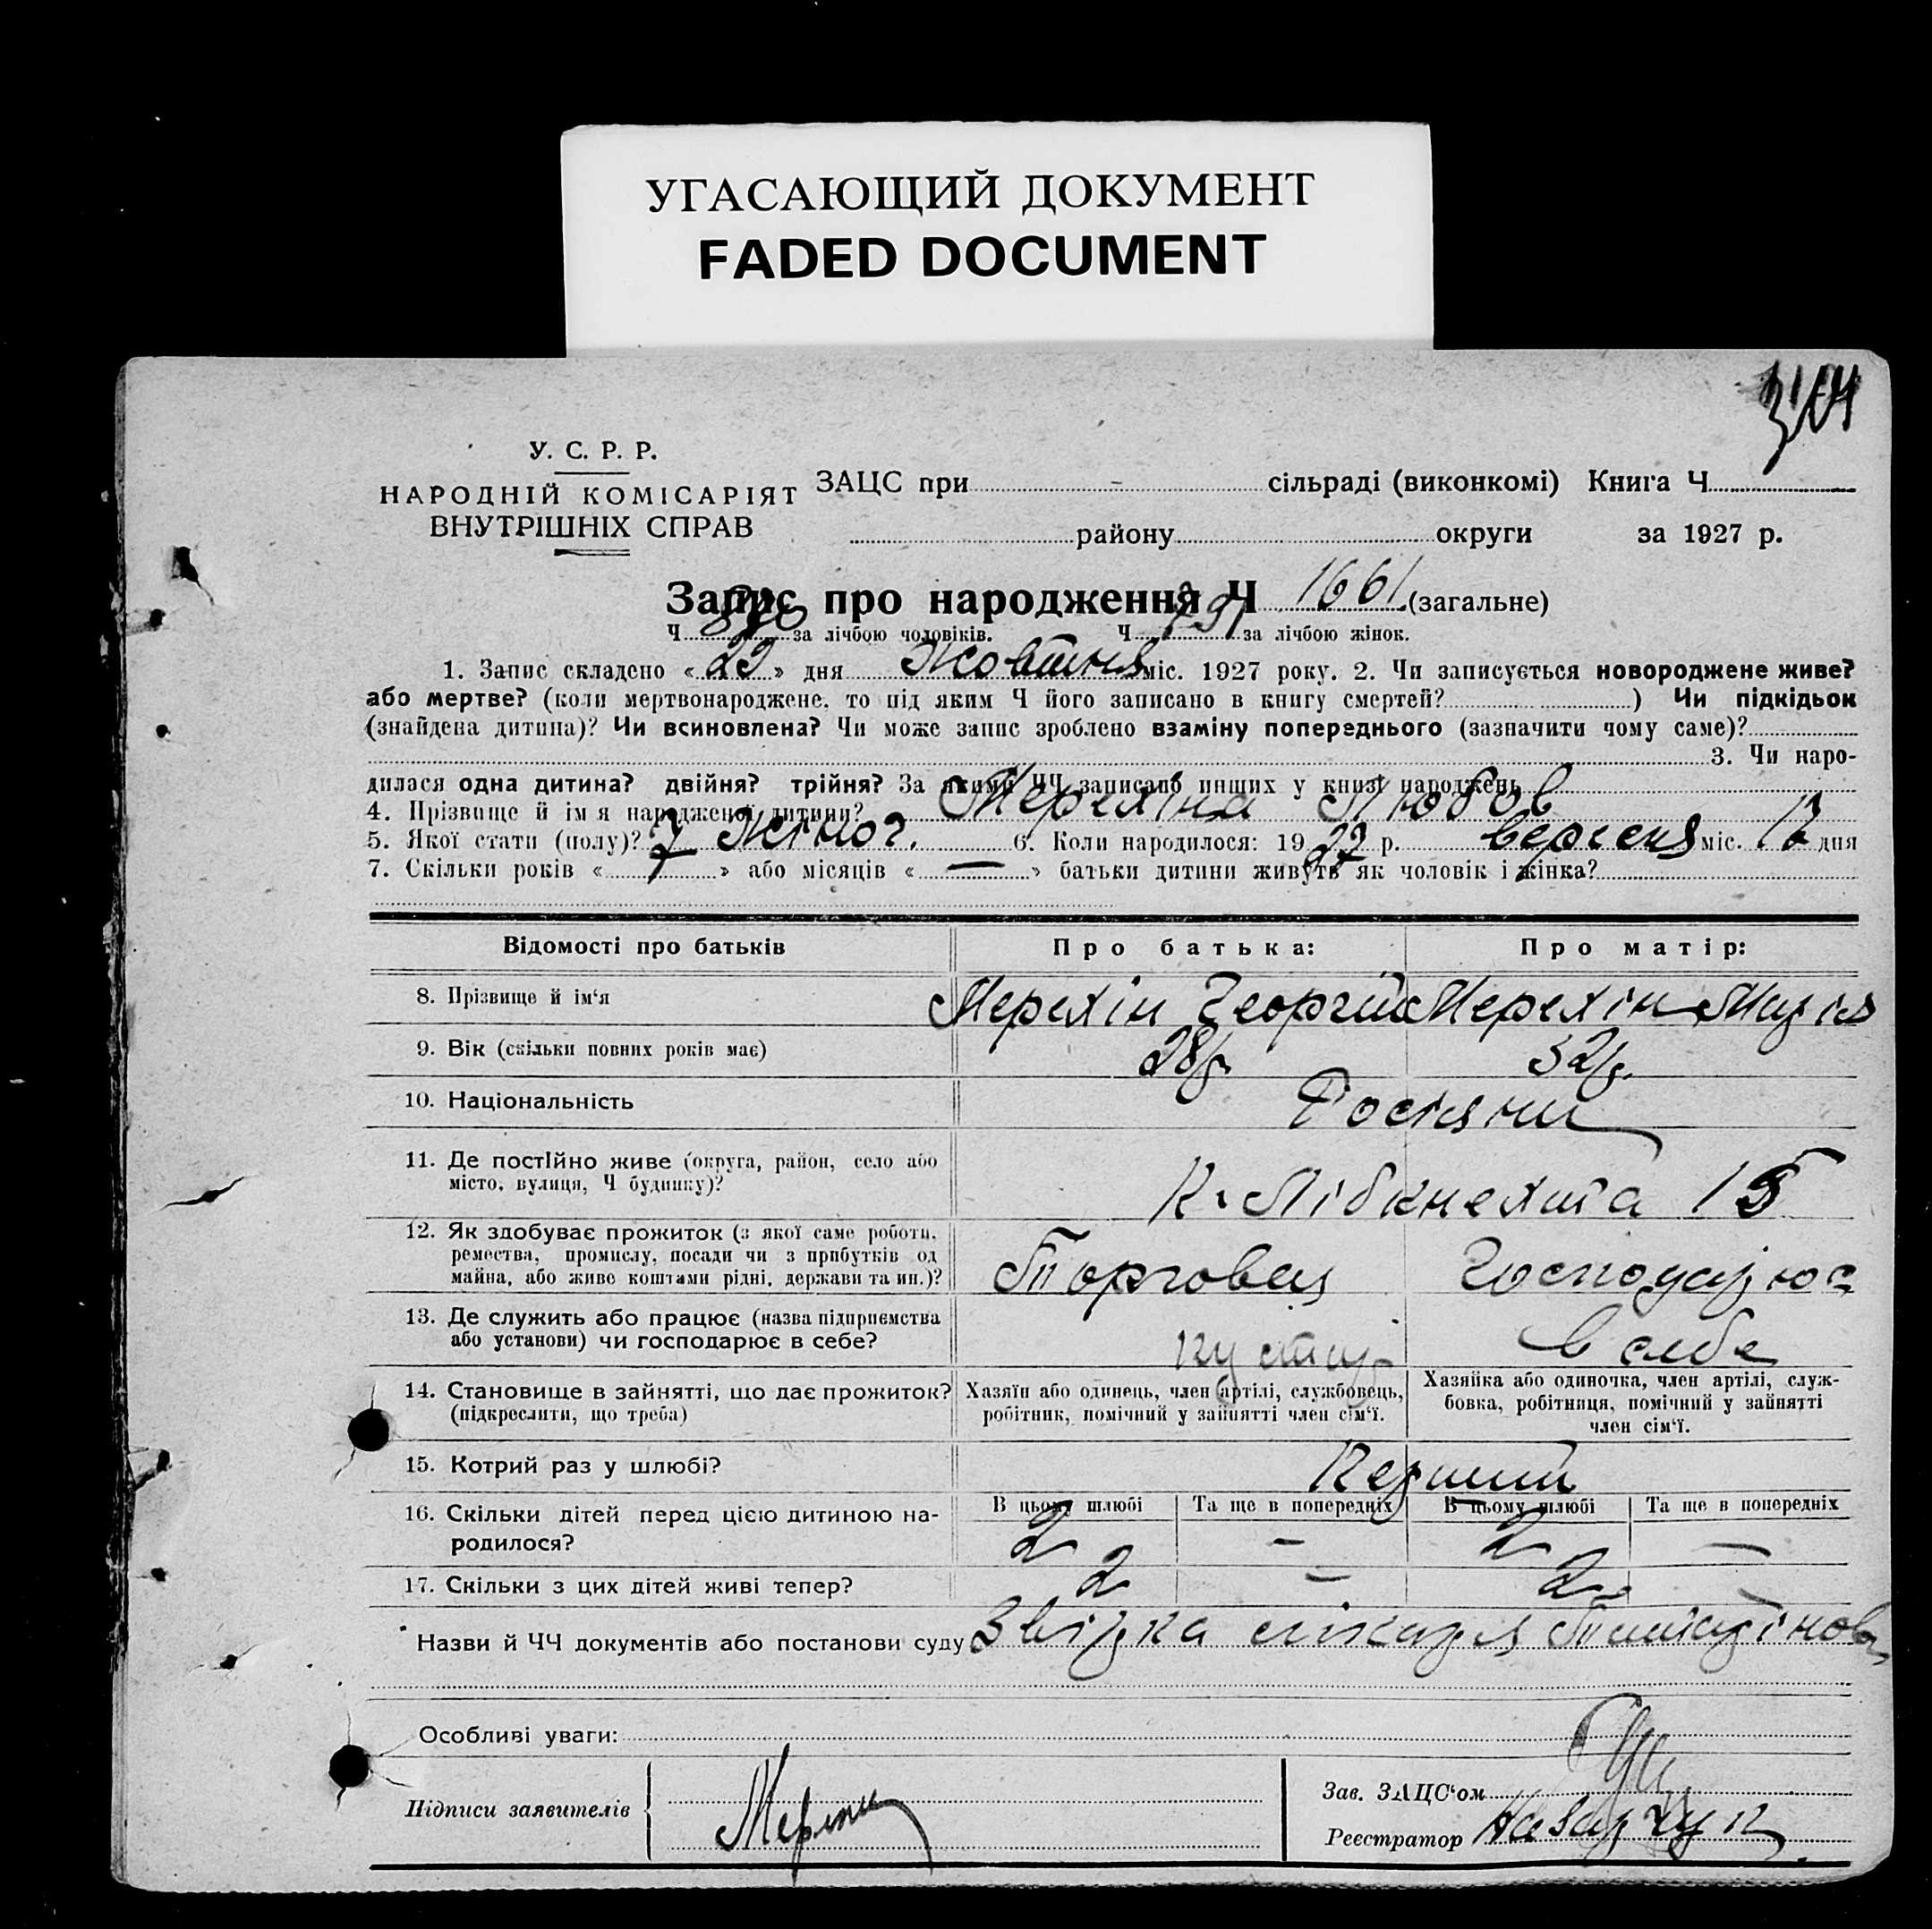 УГАСАЮЩИЙ ДОКУМЕНТ
FADED DOCUMENT
У. С. Р. Р.
НАРОДНІЙ КОМІСАРІЯТ
ВНУТРІШНІХ СПРАВ
ЗАЦС при - сільраді (виконкомі) Книга Ч
району округи за 1927 р.
Запис про народження Ч 1661 (загальне)
Ч за лічбою чоловіків. Ч 791 за лічбою жінок.
1. Запис складено « 29 » дня Жовтня міс. 1927 року. 2. Чи записується новороджене живе?
або мертве? (коли мертвонароджене, то під яким Ч його записано в книгу смертей? ) Чи підкідьок
(знайдена дитина)? Чи всиновлена? Чи може запис зроблено взаміну попереднього (зазначити чому саме)?
3. Чи наро-
дилася одна дитина? двійня? трійня? За якими ЧЧ записано инших у книзі народжень
4. Прізвище й ім я народженої дитини? Мерехіна Любов
5. Якої стати (полу)? Жіноч. 6. Коли народилося: 19 27 р. вересня міс. 17 дня
7. Скільки років « 7 » або місяців « — » батьки дитини живуть як чоловік і жінка?
Відомості про батьків Про батька: Про матір:
8. Прізвище й ім‘я Мерехін Георгій Мерехін Марія
9. Вік (скільки повних років має) 28 р. 32 р.
10. Національність Росіяни
11. Де постійно живе (округа, район, село або
місто, вулиця, Ч будинку)? К. Лібкнехта 15
12. Як здобуває прожиток (з якої саме роботи,
ремества, промислу, посади чи з прибутків од
майна, або живе коштами рідні, держави та ин.)? Торговец Господарює
13. Де служить або працює (назва підприємства
або установи) чи господарює в себе? кустар в себе
14. Становище в зайнятті, що дає прожиток? Хазяїн або одинець, член артілі, службовець, Хазяйка або одиночка, член артілі, служ-
(підкреслити, що треба) робітник, помічний у зайнятті член сім‘ї. бовка, робітниця, помічний у зайнятті
член сім‘ї.
15. Котрий раз у шлюбі? Перший
16. Скільки дітей перед цією дитиною на- В цьому шлюбі Та ще в попередніх В цьому шлюбі Та ще в попередніх
родилося? 2 — 2 —
17. Скільки з цих дітей живі тепер? 2 — 2 —
Назви й ЧЧ документів або постанови суду Звірка лікаря
Особливі уваги:
Підписи заявителів
Зав. ЗАЦС‘ом
Реєстратор